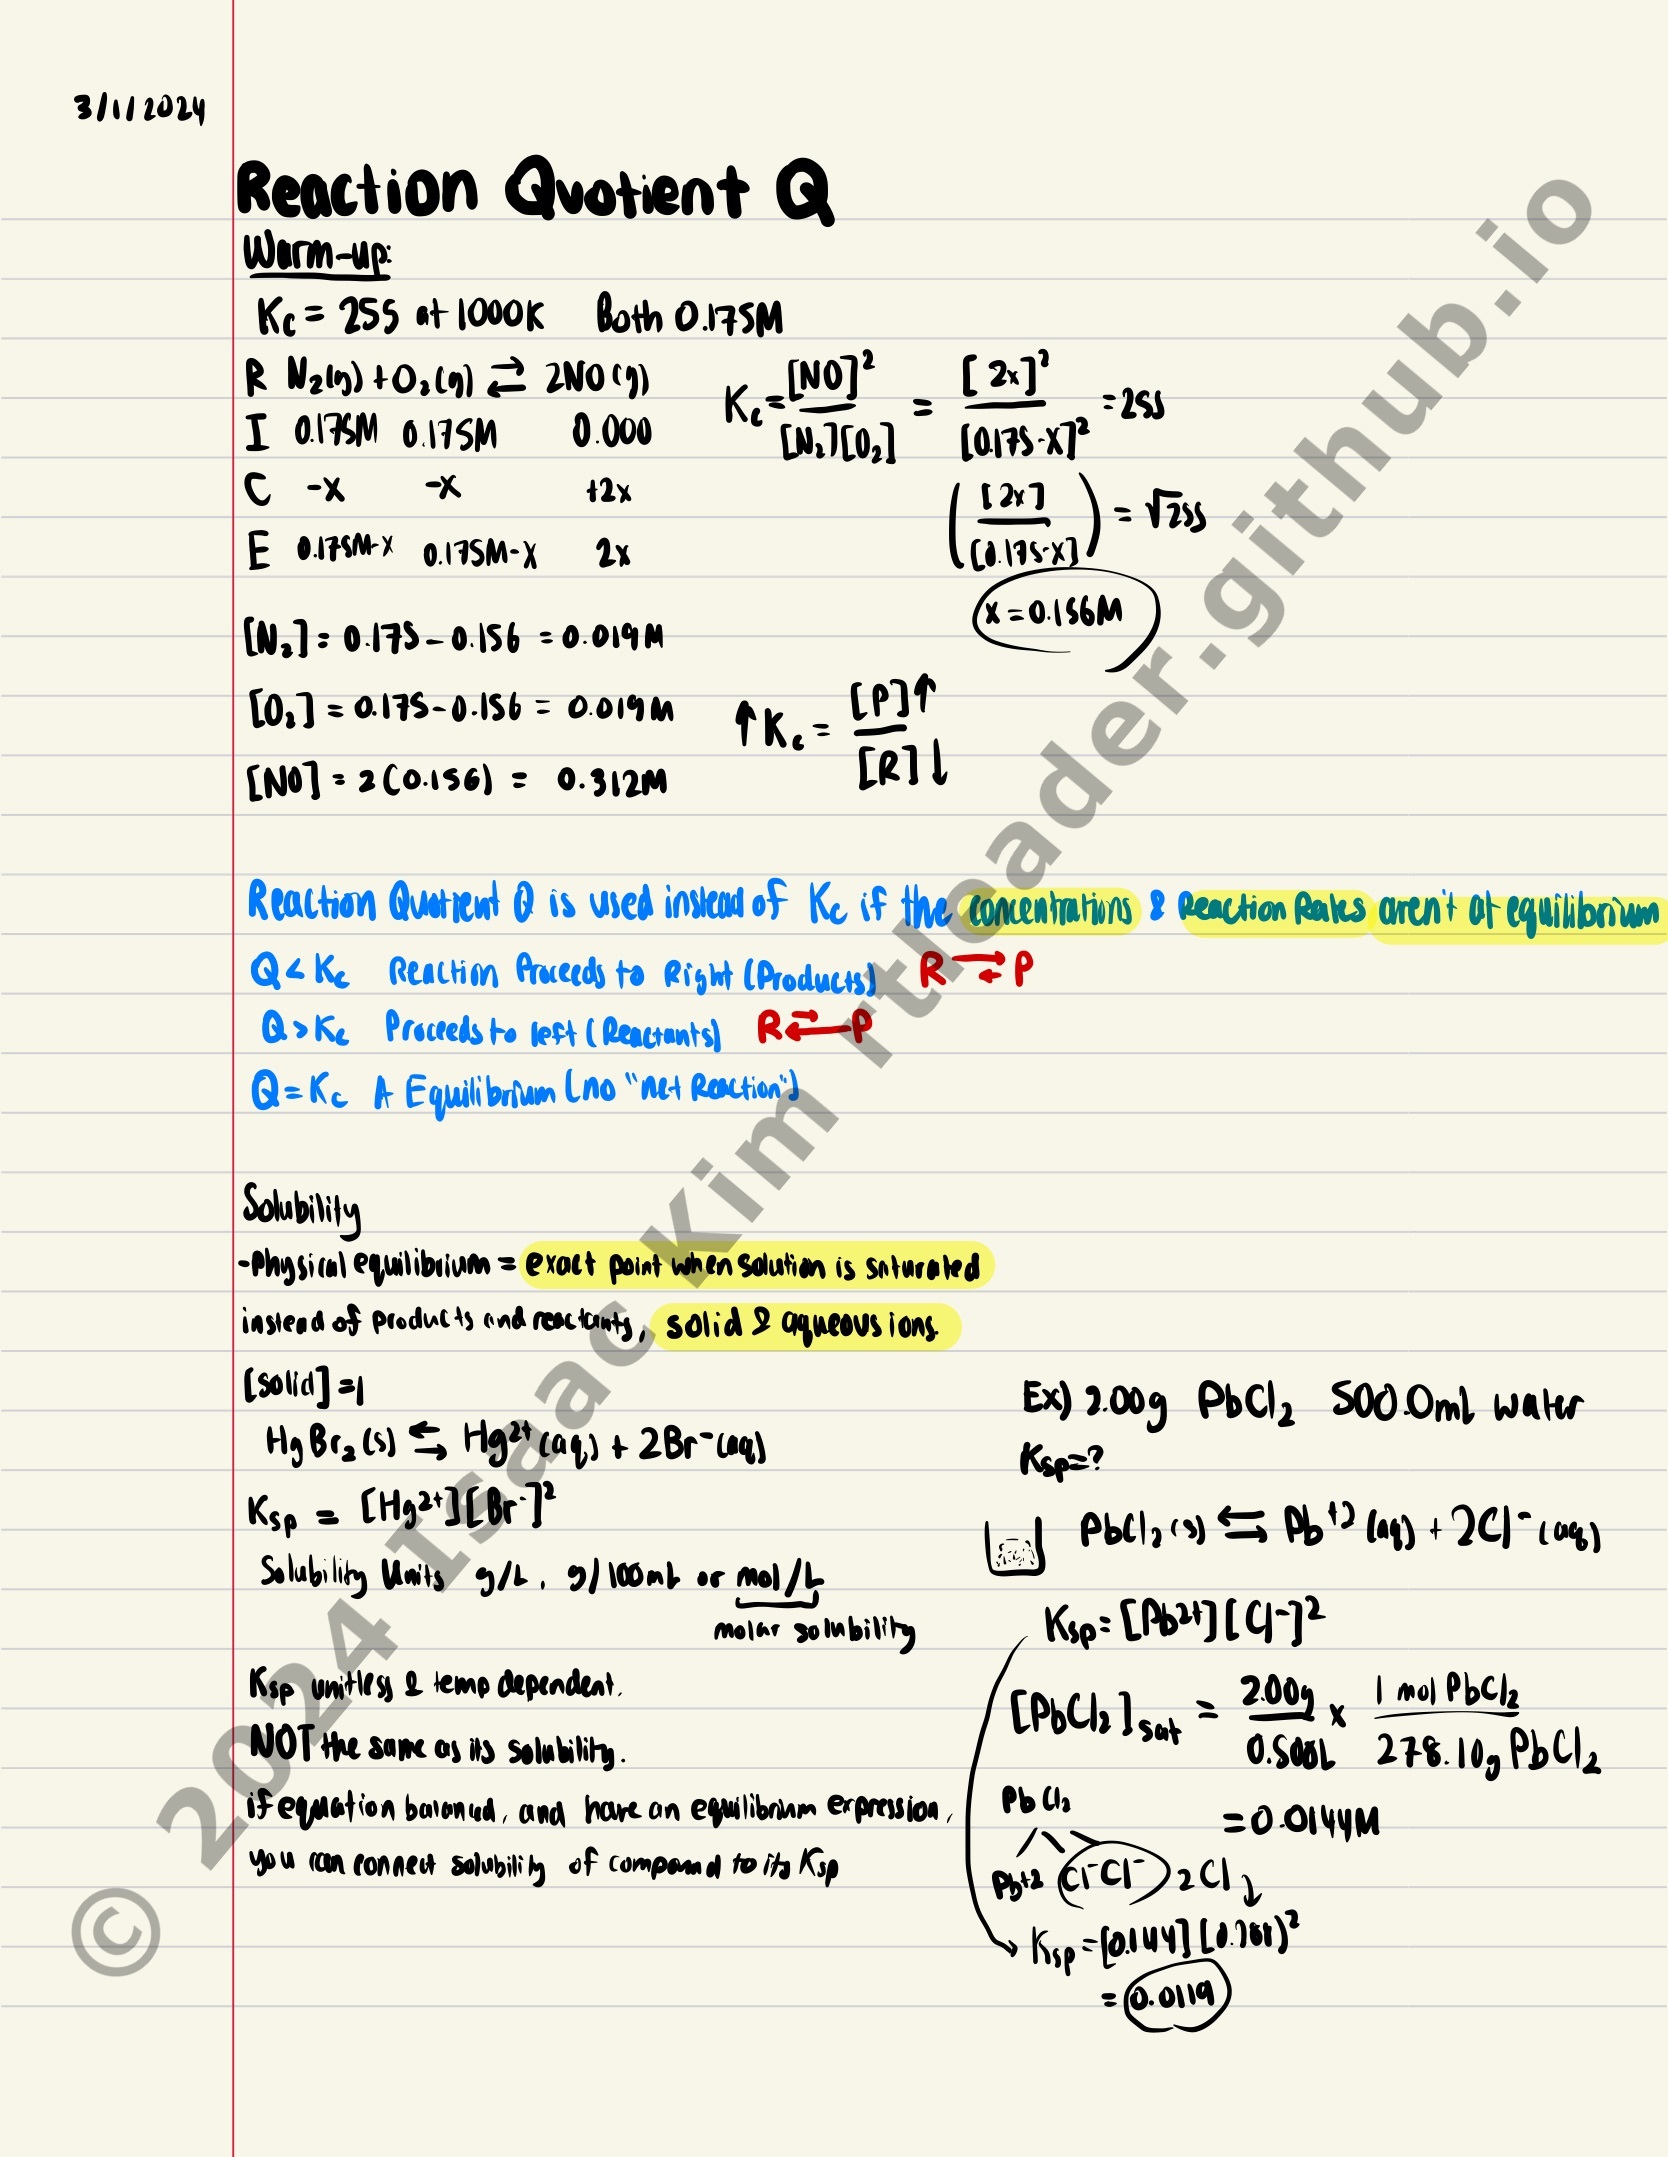 3/1/2024
Reaction Quotient Q
Warm-up:
Kc = 255 at 1000K Both 0.175M
R N₂(g) + O₂(g) ⇄ 2NO(g)
I 0.175M 0.175M 0.000
C -x -x +2x
E 0.175M-x 0.175M-x 2x
Kc = [NO]² / [N₂][O₂] = [2x]² / [0.175-x]² = 255
([2x] / [0.175-x]) = √255
x = 0.156M
[N₂] = 0.175 - 0.156 = 0.019M
[O₂] = 0.175 - 0.156 = 0.019M
[NO] = 2(0.156) = 0.312M
↑Kc = [P]↑ / [R]↓
Reaction Quotient Q is used instead of Kc if the concentrations & Reaction Rates aren't at equilibrium
Q < Kc Reaction Proceeds to Right (Products) R ⇄ P
Q > Kc Proceeds to left (Reactants) R ⇄ P
Q = Kc A Equilibrium (no "net Reaction")
Solubility
-Physical equilibrium = exact point when solution is saturated
instead of products and reactants, solid & aqueous ions.
[solid] = 1
HgBr₂(s) ⇆ Hg²⁺(aq) + 2Br⁻(aq)
Ksp = [Hg²⁺][Br⁻]²
Solubility Units g/L, g/100mL or mol/L
molar solubility
Ksp unitless & temp dependent.
NOT the same as its solubility.
if equation balanced, and have an equilibrium expression,
you can connect solubility of compound to its Ksp
Ex) 2.00g PbCl₂ 500.0mL water
Ksp = ?
PbCl₂(s) ⇆ Pb⁺²(aq) + 2Cl⁻(aq)
Ksp = [Pb²⁺][Cl⁻]²
[PbCl₂]sat = 2.00g / 0.500L x 1 mol PbCl₂ / 278.10g PbCl₂
= 0.0144M
PbCl₂
Pb⁺² Cl⁻ Cl⁻ 2Cl
Ksp = [0.144]
= 0.0119
© 2024 Isaac Kim rtloader.github.io